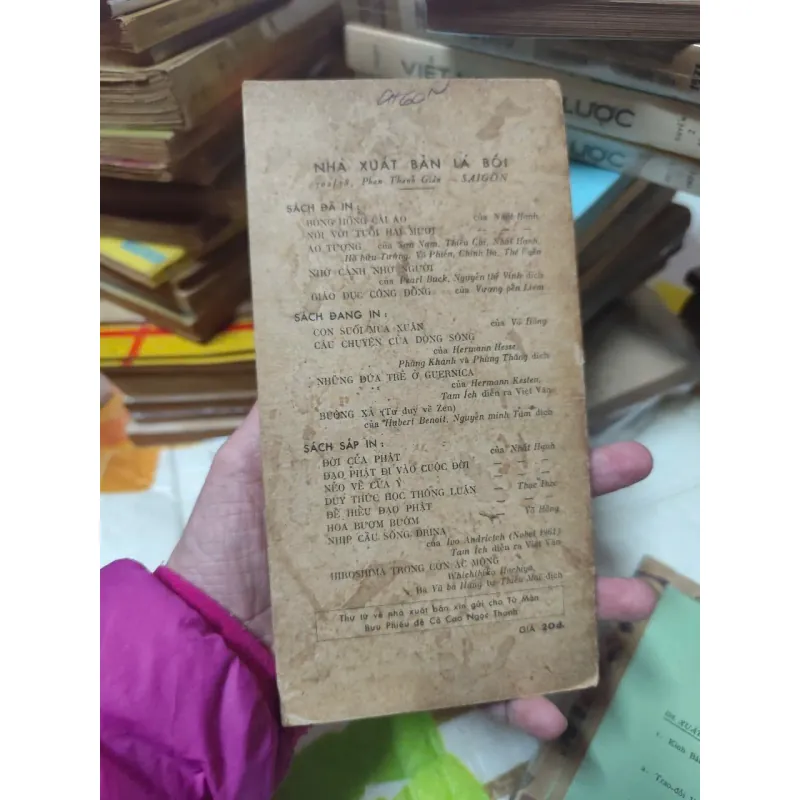 NHÀ XUẤT BẢN LÁ BỐI
Phan Thanh Giản - SAIGON
SÁCH ĐÃ IN :
BÔNG HỒNG CÀI ÁO của Nhất Hạnh
NÓI VỚI TUỔI HAI MƯƠI — — —
ẢO TƯỢNG của Sơn Nam, Thiều Chi, Nhất Hạnh,
Hồ hữu Tường, Võ Phiến, Chinh Ba, Thế Uyên
NHỚ CẢNH NHỚ NGƯỜI
của Pearl Buck, Nguyễn thế Vinh dịch
GIÁO DỤC CỘNG ĐỒNG của Vương pển Liêm
SÁCH ĐANG IN :
CON SUỐI MÙA XUÂN của Võ Hồng
CÂU CHUYỆN CỦA DÒNG SÔNG
của Hermann Hesse
Phùng Khánh và Phùng Thăng dịch
NHỮNG ĐỨA TRẺ Ở GUERNICA
của Hermann Kesten,
Tam Ích diễn ra Việt Văn
BUÔNG XẢ (Tư duy về Zen)
của Hubert Benoit, Nguyễn minh Tâm dịch
SÁCH SẮP IN :
ĐỜI CỦA PHẬT của Nhất Hạnh
ĐẠO PHẬT ĐI VÀO CUỘC ĐỜI — — —
NẺO VỀ CỦA Ý — — —
DUY THỨC HỌC THÔNG LUẬN — Thạc Đức
ĐỂ HIỂU ĐẠO PHẬT — — —
HOA BƯƠM BƯỚM — Võ Hồng
NHỊP CẦU SÔNG DRINA
của Ivo Andritch (Nobel 1961)
Tam Ích diễn ra Việt Văn
HIROSHIMA TRONG CƠN ÁC MỘNG
Hachiya,
Thư từ về nhà xuất bản xin gửi cho Từ Mẫn
Bưu Phiếu đề Cô Cao Ngọc Thanh
GIÁ 20đ.
VIỆT
LƯỢC